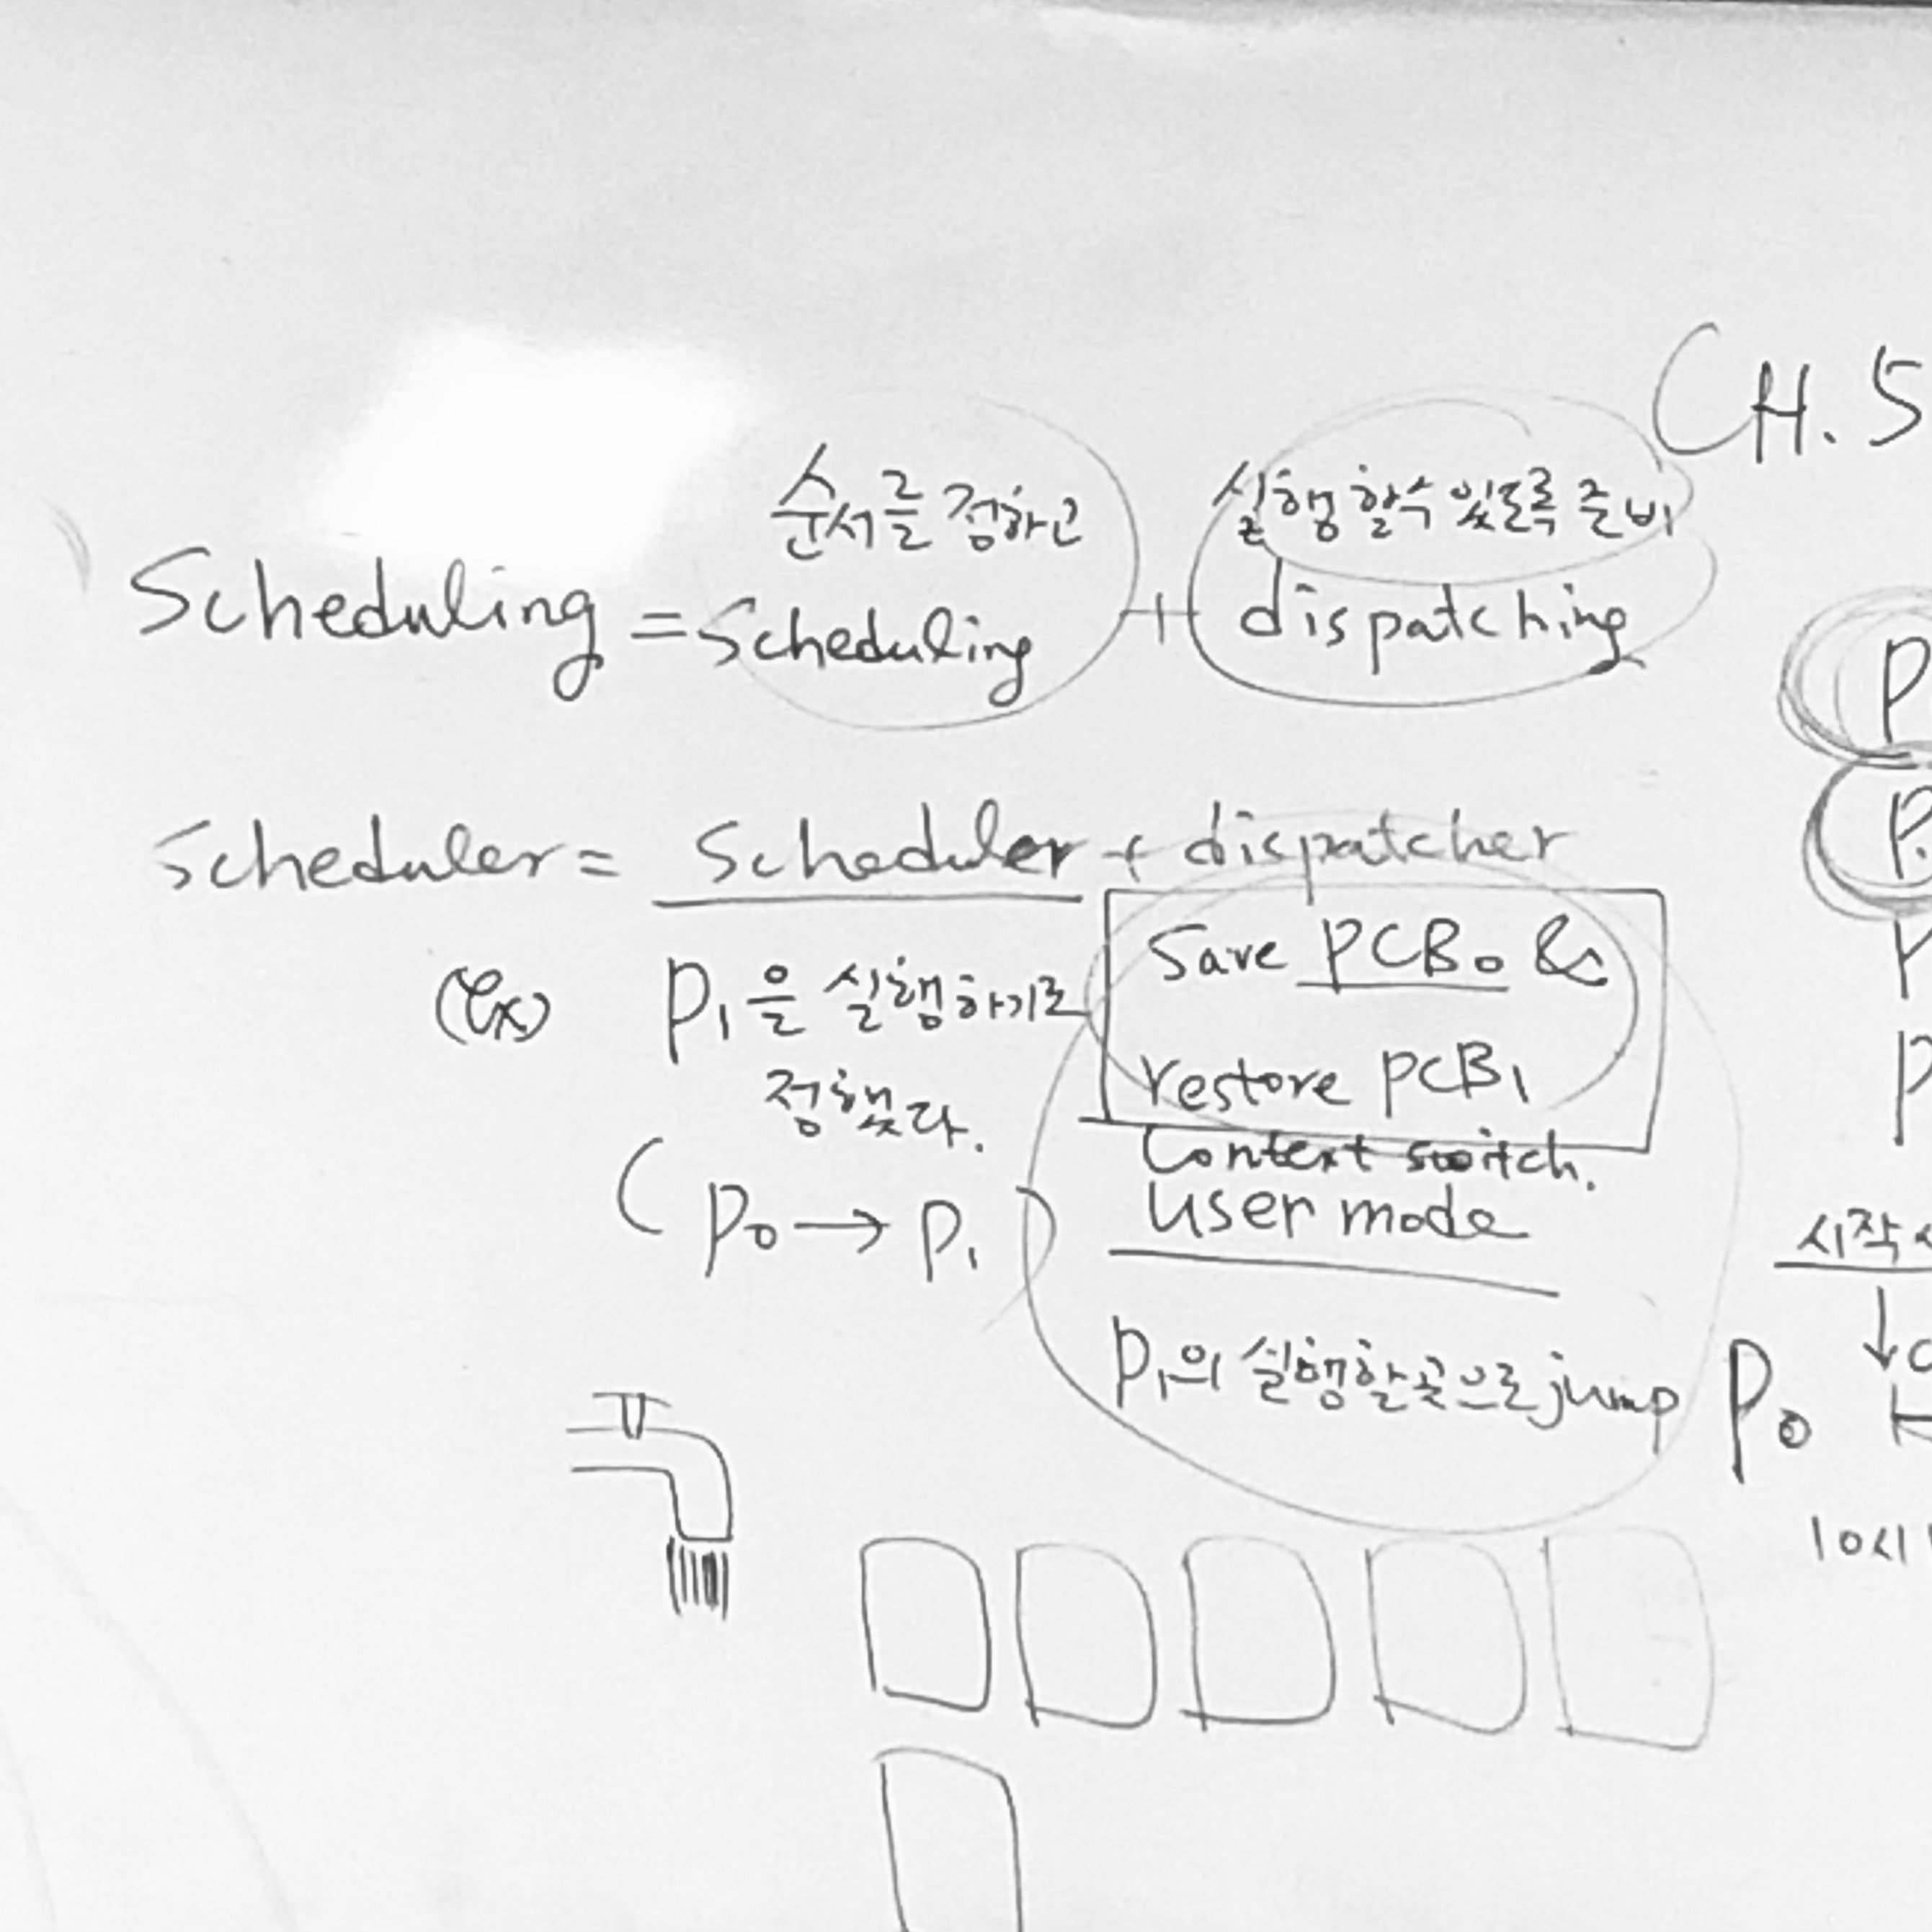 CH. 5
순서를 정하고 실행 할수 있도록 준비
Scheduling = Scheduling + dispatching
P
Scheduler = Scheduler + dispatcher
P
(ex) P1을 실행하기로
정했다.
(P0 → P1)
Save PCB0 &
restore PCB1
Context switch.
user mode
P1의 실행할곳으로 jump
P
P
시작
P0
10시